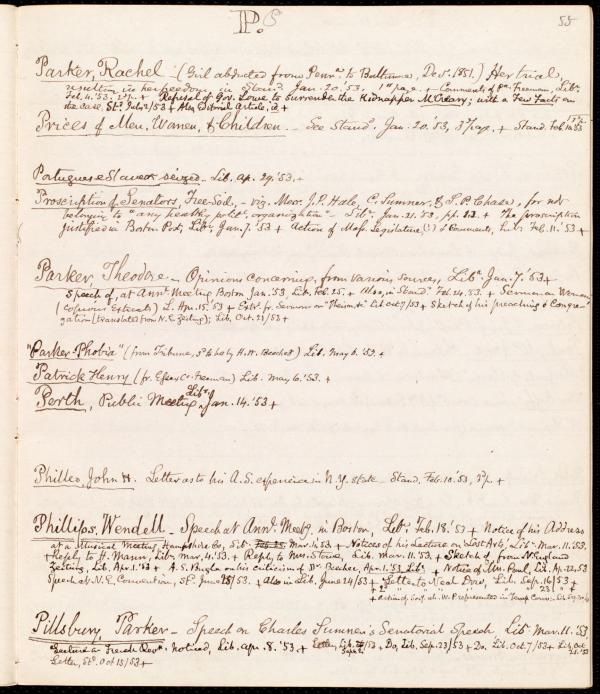 P. 55
Parker, Rachel - (Girl abducted from Penna. to Baltimore, Decr. 1851.) Her trial
resulting in her freedom, in Stand. Jan. 20. '53. 1st page. + Comments of Pa. Freeman, Libr.
Feb. 4. '53. 2d p. + Refusal of Gov. Lowe to surrender the Kidnapper McCreary; with a Few Facts on
the case, St. July 2/53 +
Prices of Men, Women, & Children. - See Stand. Jan. 20. '53, 3d pag. + Stand. Feb. 10 '53
Portuguese Slaver seized. - Lib. Ap. 29. '53. +
Proscription of Senators, Free-Soil, - viz. Mess. J. P. Hale, C. Sumner, & S. P. Chase, for not
belonging to "any healthy polit. organization" - Libr. Jan. 21. '53, pp. + The proscription
justified in Boston Post, Libr. Jan. 7. '53 + Action of Mass. Legislature (!) & Comments, Libr. Feb. 11. '53 +
Parker, Theodore - Opinions concerning, from various sources, Libr. Jan. 7. '53 +
Speech of, at Annl. Meeting Boston Jan. '53, Lib. Feb. 25. + Also, in Stand. Feb 24. 53. + Sermon on Woman,
(copious extracts) L. Apr. 15. '53 + Extr. fr. Sermon on "Theism, &c" Lib. Oct. 7/53 + Sketch of his preaching & Congre-
gation (translated from N. E. Zeitung); Lib. Oct. 21/53 +
"Parker-Phobia" (from Tribune, to be by H. W. Beecher) Lib. May 6. '53. +
Patrick Henry (fr. Essex Co. Freeman) Lib. May 6. '53. +
Perth, Public Meeting, Lib. Jan. 14. '53 +
Philleo, John H. Letter as to his A. S. experience in N. Y. State - Stand. Feb. 10. '53, 3d p. +
Phillips, Wendell - Speech at Annl. Meetg. in Boston, Libr. Feb. 18. '53 + Notice of his Address
at a Musical Meeting, Hampshire Co, Libr. Mar. 4. '53 + Notices of his Lecture on Lost Arts, Libr. Mar. 11. '53.
+ Reply to H. Mann, Libr. Mar. 4. '53 + Reply to Mrs. Stowe, Lib. Mar. 11. '53. + Sketch of, from N. England
Zeitung, Lib. Apr. 1. '53 + A. S. Bugle on his criticism of Dr. Beecher, Apr. 1. '53 Libr. + Notice of Mrs. Paul, Lib. Ap. 22, 53
Speech at N. E. Convention, St. June /53 + also in Lib. June 24/53 + Letter to Neal Dow, Lib. Sep. 16/53 +
+ 2d " " " 23 " " +
Pillsbury, Parker - Speech on Charles Sumner's Senatorial Speech Libr. Mar. 11. '53,
Lecture on French Revn. noticed, Lib. Apr. 8. '53 + Letter, Lib. /53 + Do, Lib. Sep. 23/53 + Do. Lib. Oct. 7/53 + Lib. Oct. 21. '53
Letter, St. Oct 13/53 +